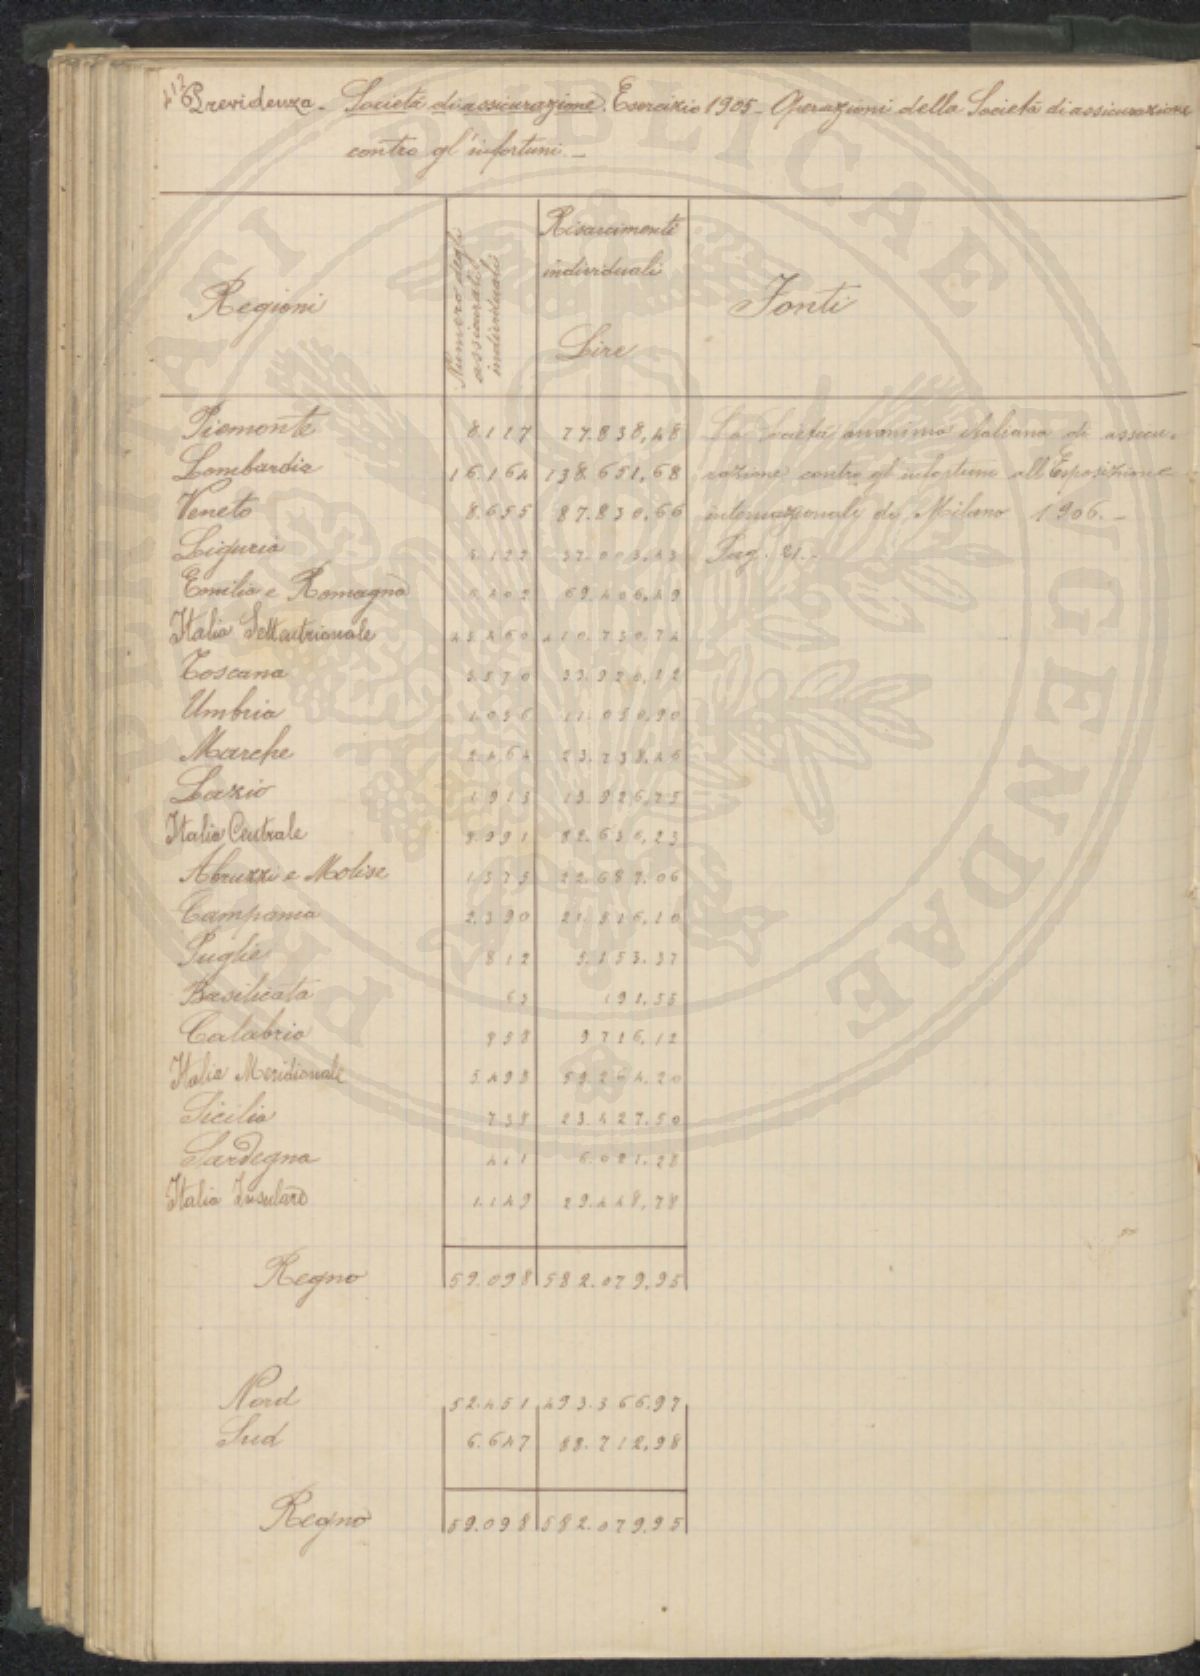 412
Previdenza - Società di assicurazione. Esercizio 1905 - Operazioni della Società di assicurazione
contro gl'infortuni -
Regioni
Numero degli assicurati individuali
Risarcimenti individuali
Lire
Fonti
Piemonte 8.117 77.838,48 La Società anonima italiana di assicu-
Lombardia 16.164 138.651,68 razione contro gl'infortuni all'Esposizione
Veneto 8.655 87.830,66 internazionale di Milano 1906. -
Liguria 5.122 37.003,43 Pag. 21. -
Emilia e Romagna 5.402 69.406,49
Italia Settentrionale 43.460 410.730,74
Toscana 3.570 33.920,12
Umbria 1.036 11.050,90
Marche 2.464 23.738,46
Lazio 1.913 13.926,75
Italia Centrale 8.991 82.636,23
Abruzzi e Molise 1.375 22.687,06
Campania 2.390 21.516,10
Puglie 812 5.153,37
Basilicata 63 191,55
Calabria 858 9.716,12
Italia Meridionale 5.498 59.264,20
Sicilia 738 23.427,50
Sardegna 411 6.021,28
Italia Insulare 1.149 29.448,78
Regno 59.098 582.079,95
Nord 52.451 493.366,97
Sud 6.647 88.712,98
Regno 59.098 582.079,95